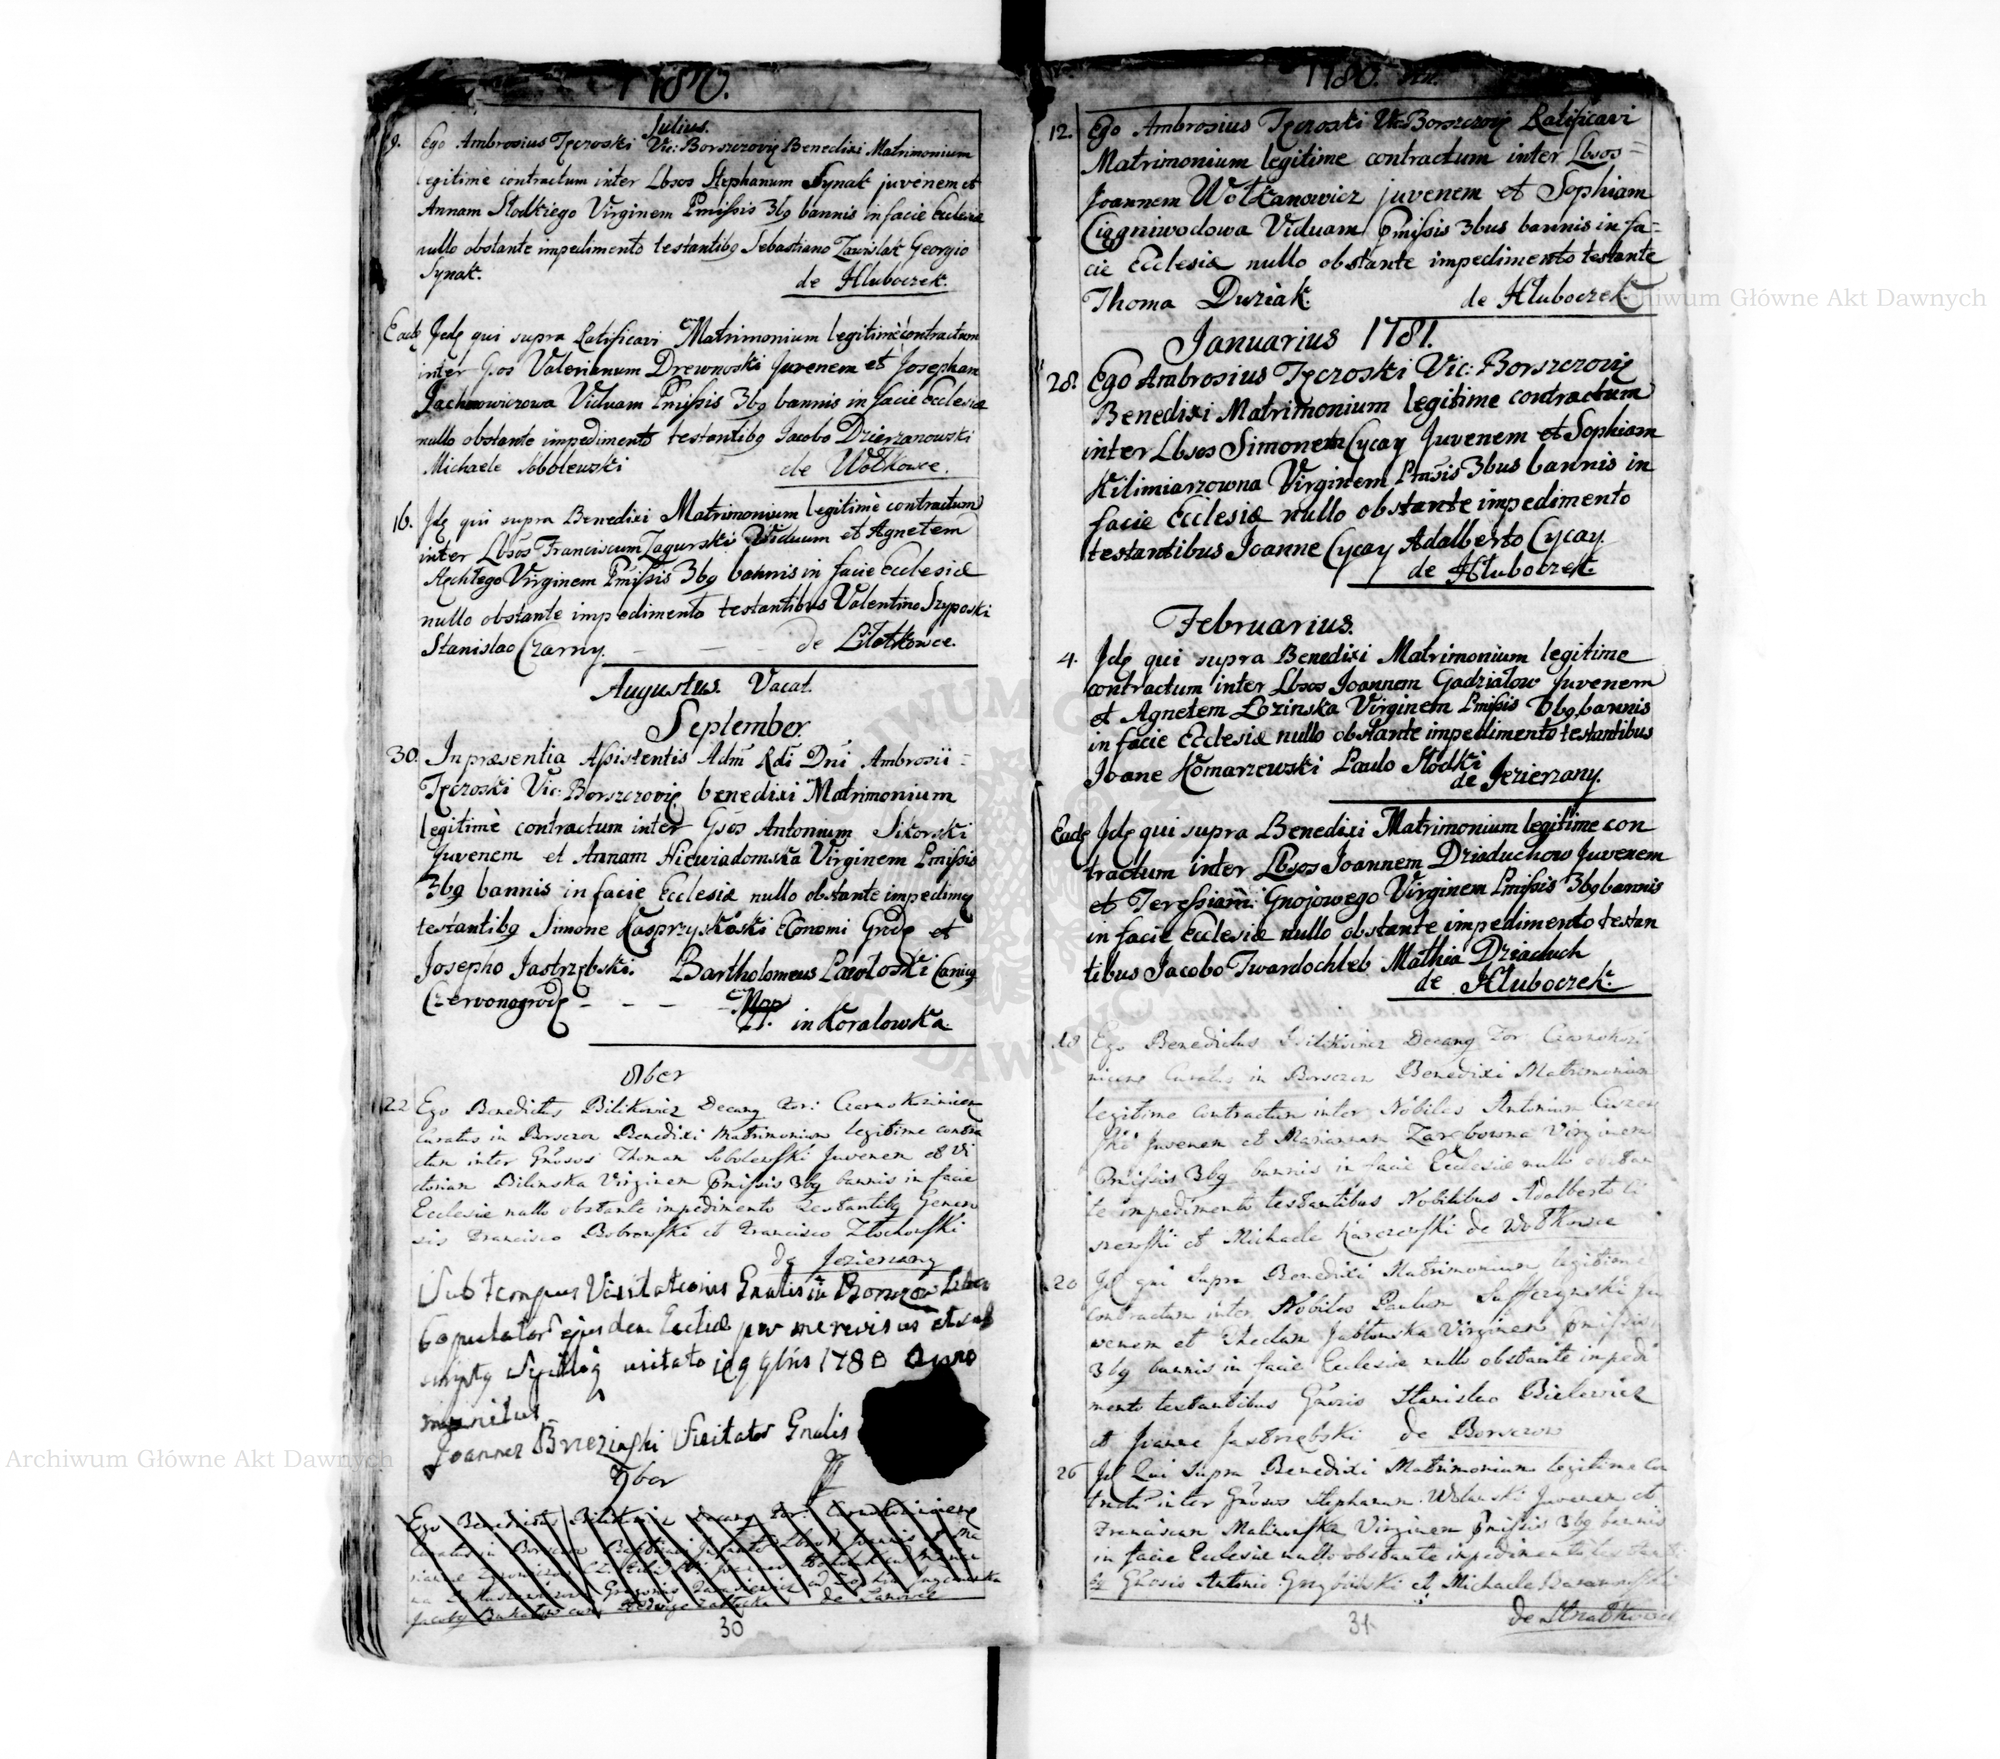 1780.
Julius.
9. Ego Ambrosius Tęczoski Vic: Borszczovię Benedixi Matrimonium
legitimè contractum inter Lbsos Stephanum Synak juvenem et
Annam Słodkiego Virginem Pmissis 3bq bannis in facie Ecclesiæ
nullo obstante impedimento testantibq Sebastiano Zawislak Georgio
Synak. de Hluboczek.
Eadę Jdę qui supra Ratificavi Matrimonium legitimè contractum
inter Gsos Valerianum Drewnoski Juvenem et Josepham
Jachnowiczowa Viduam Pmissis 3bq bannis in facie Ecclesiæ
nullo obstante impedimento testantibq Jacobo Dzierzanowski
Michaele Sobolewski de Wołkowce.
16. Jdę qui supra Benedixi Matrimonium legitimè contractum
inter Lbsos Franciscum Zagurski Viduum et Agnetem
Virginem Pmissis 3bq bannis in facie Ecclesiæ
nullo obstante impedimento testantibus Valentino Szyposki
Stanislao Czarny. _ _ _ de Latkowce.
Augustus. Vacat.
September.
30. In præsentia Assistentis Adm Rdi Dni Ambrosii =
Tęczoski Vic: Borszczovię benedixi Matrimonium
legitimè contractum inter Gsos Antonium Sikorski
Juvenem et Annam Niewiadomska Virginem Pmissis
3bq bannis in facie Ecclesiæ nullo obstante impedimę
testantibq Simone Kasprzyskoski Economi Grodę et
Josepho Jastrzębski. Bartholomeus Pawłoski Canicq
Czervonogrodę - - - Mpp
in Korolowska.
8ber
22 Ego Benedictus Bilikowicz Decang For: Czarnokozinicen
Curatus in Borszczow Benedixi Matrimonium legitime contra
ctum inter Gnosos Thomam Sobolewski Juvenem et Vi
ctoriam Bilinska Virginem Pmissis 3bq bannis in facie
Ecclesiæ nullo obstante impedimento testantibq Genero
sis Francisco Bobrowski et Francisco Złochowski
de Jezierzany
Sub tempus Visitationis Gnalis in Borszczow Liber
Copulator ejusdem Ecclæ per me revisus et sub
usitato 1780 Anno
munitus
Joannes Brzezinski Visitator Gnalis
9ber
Ego Benedictus Bilikowicz Decang For: Czarnokozinicens
Curatus in Borszczow
30
1780.
12. Ego Ambrosius Tęczoski Vic: Borszczovię Ratificavi
Matrimonium legitime contractum inter Lbsos =
Joannem Wołkanowicz juvenem et Sophiam
Ciągniwodowa Viduam Pmissis 3bus bannis in fa=
cie Ecclesiæ nullo obstante impedimento testante
Thoma Duziak. de Hluboczek.
Januarius 1781.
28. Ego Ambrosius Tęczoski Vic: Borszczovię
Benedixi Matrimonium legitime contractum
inter Lbsos Simonem Cycay Juvenem et Sophiam
Kilimiarzowna Virginem Pmssis 3bus bannis in
facie Ecclesiæ nullo obstante impedimento
testantibus Joanne Cycay Adalberto Cycay
de Hluboczek.
Februarius.
4. Jdę qui supra Benedixi Matrimonium legitime
contractum inter Lbsos Joannem Gadziałow Juvenem
et Agnetem Łozinska Virginem Pmissis 3bq bannis
in facie Ecclesiæ nullo obstante impedimento testantibus
Joane Komarzewski Paulo Słodki
de Jezierzany.
Eadę Jdę qui supra Benedixi Matrimonium legitime con
tractum inter Lbsos Joannem Dziaduchow Juvenem
et Teressiam Gnojowego Virginem Pmissis 3bq bannis
in facie Ecclesiæ nullo obstante impedimento testan
tibus Jacobo Twardochleb Mathia Dziaduch
de Hluboczek.
18 Ego Benedictus Bilikowicz Decang For Czarnokozi
nicens Curatus in Borszczow Benedixi Matrimonium
legitime contractum inter Nobiles Antonium Ciszew
ski Juvenem et Mariannam Zarębowna Virginem
Pmissis 3bq bannis in facie Ecclesiæ nullo obstan
te impedimento testantibus Nobilibus Adalberto Ci
szewski et Michaele Karczewski de Wołkowce
20 Jd qui supra Benedixi Matrimonium legitime
contractum inter Nobiles Paulum Sufferynski Ju
venem et Theclam Jabłonska Virginem Pmissis
3bq bannis in facie Ecclesiæ nullo obstante impedi
mento testantibus Gnosis Stanislao Bielewicz
et Joanne Jastrzębski de Borszczow
26 Jd Qui supra Benedixi Matrimonium legitime Con
tract inter Gnosos Stephanum Wolanski Juvenem et
Franciscam Malinowska Virginem Pmissis 3bq bannis
in facie Ecclesiæ nullo obstante impedimento testanti
bq Gnosis Antonio Grzybinski et Michaele Baranowski
31
Archiwum Główne Akt Dawnych
Archiwum Główne Akt Dawnych